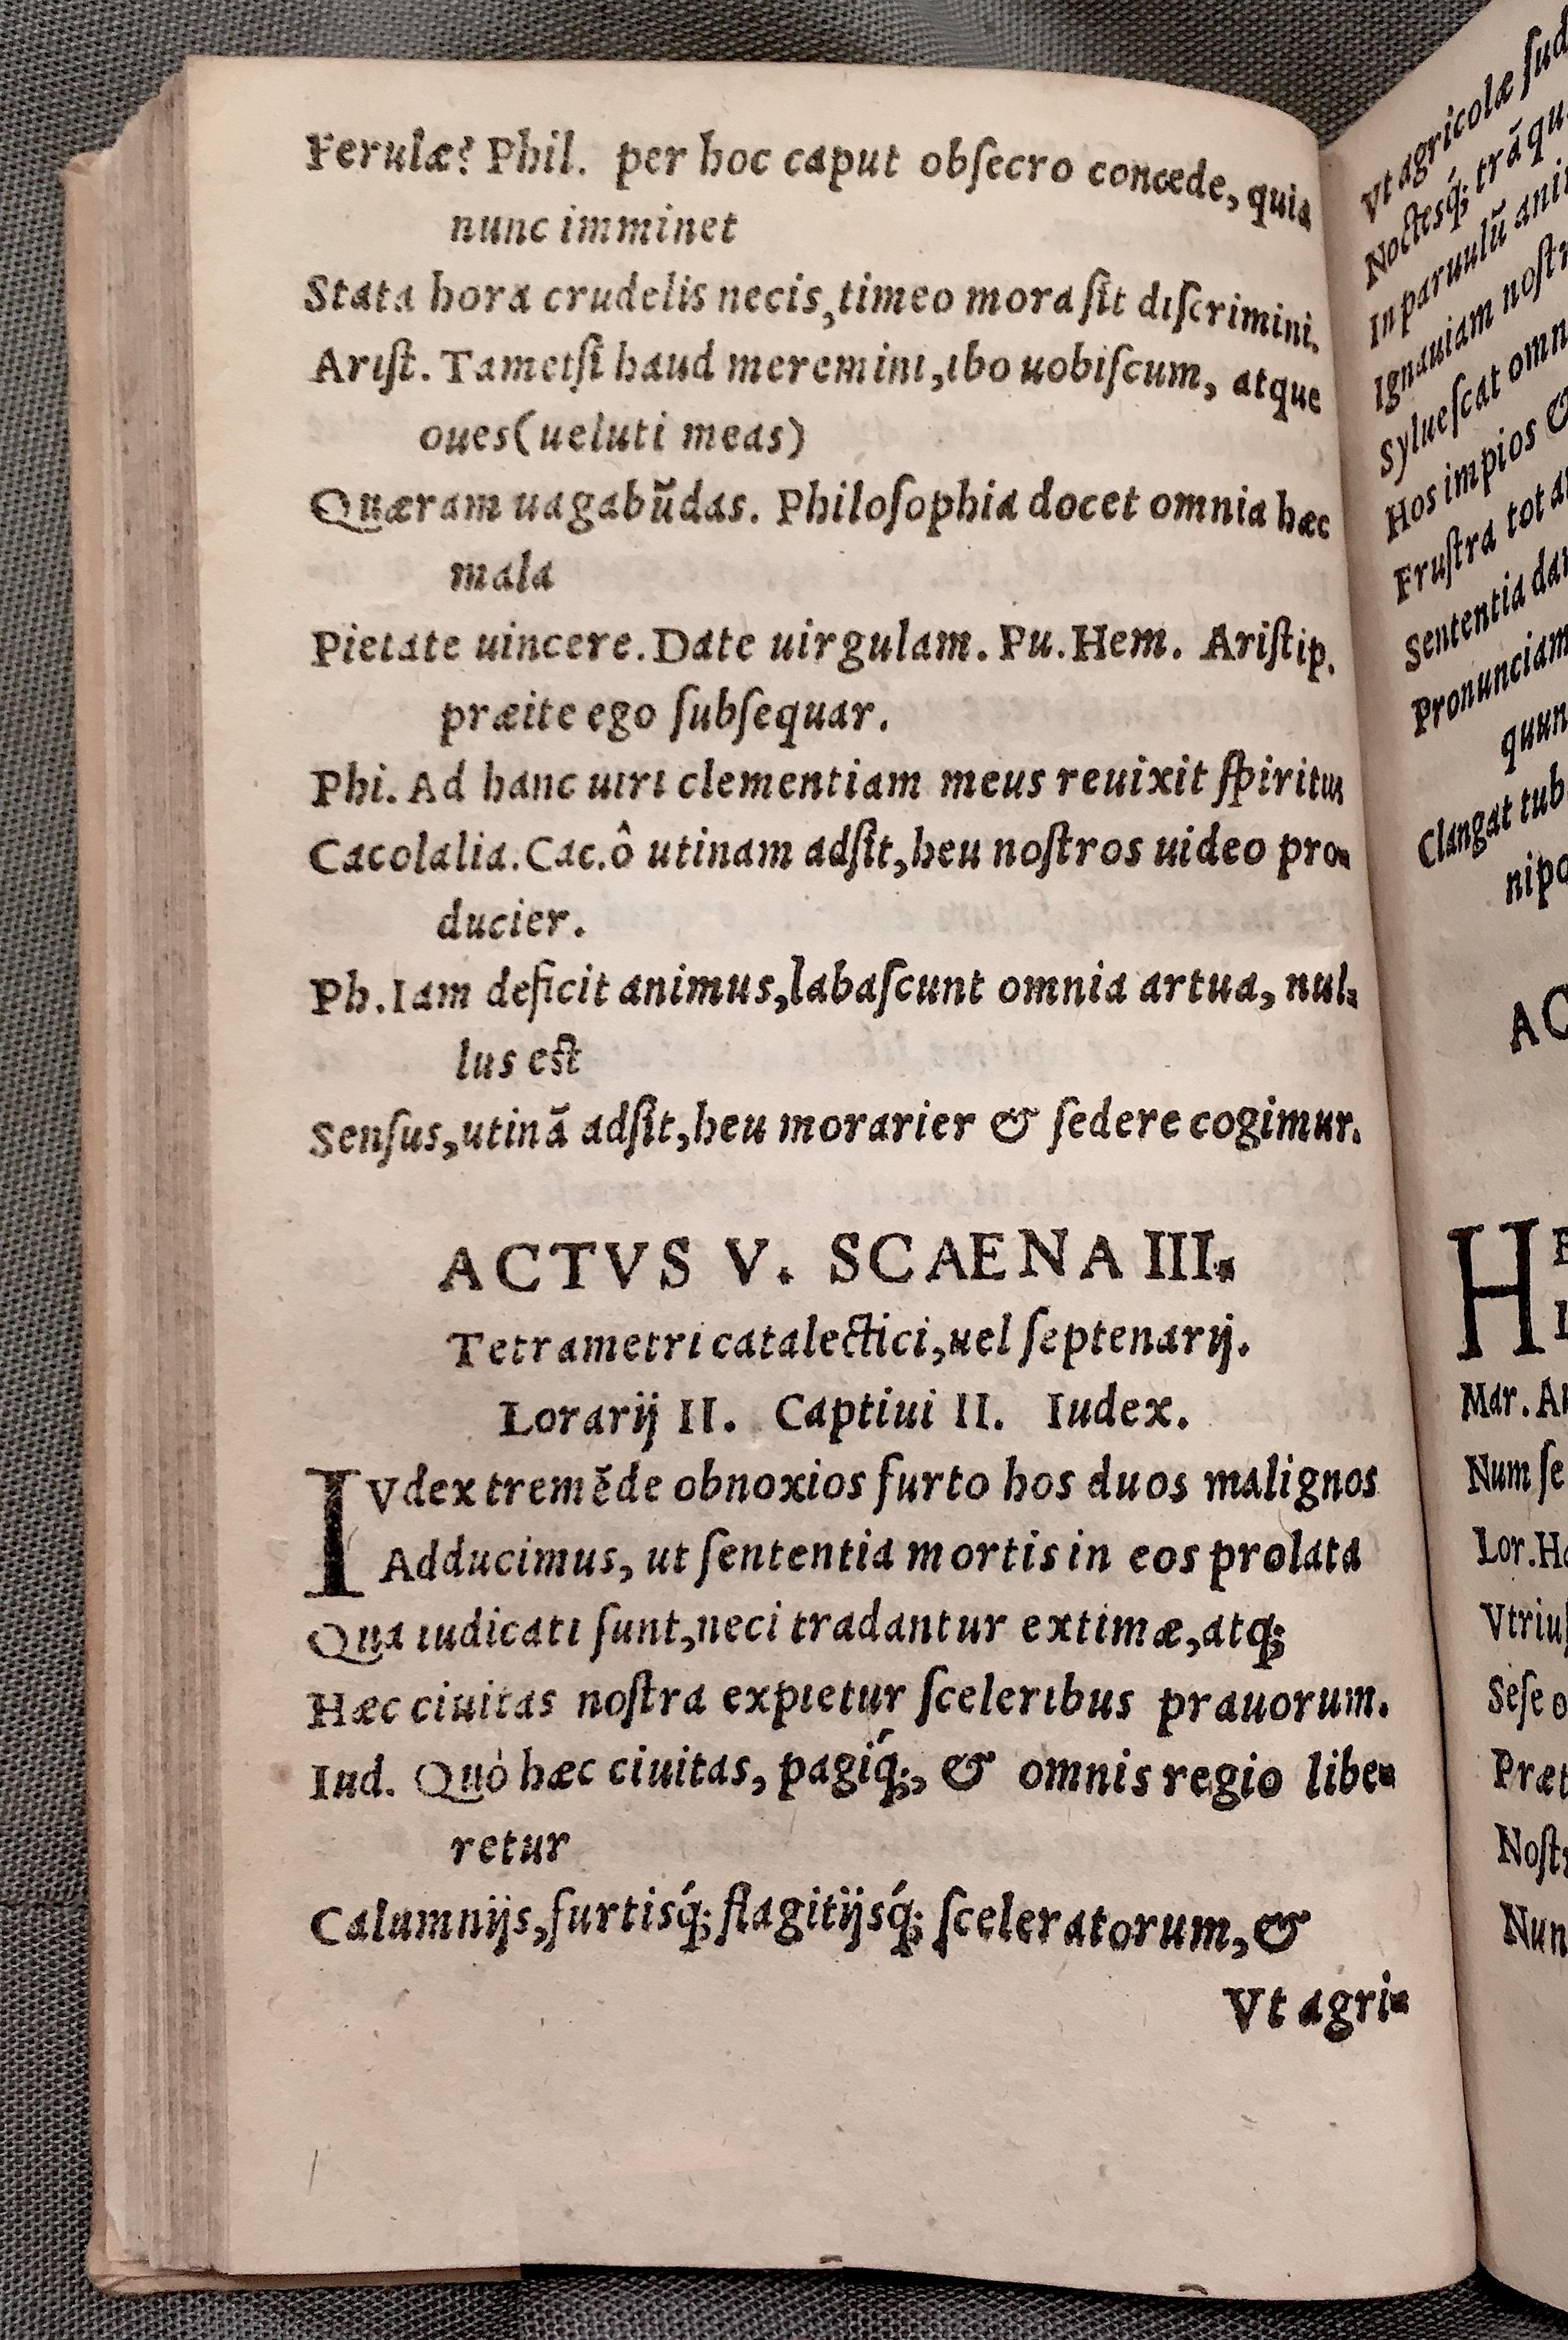 Ferulæ? Phil. per hoc caput obſecro concede, quia
nunc imminet
Stata hora crudelis necis, timeo mora ſit diſcrimini.
Ariſt. Tametſi haud meremini, ibo uobiſcum, atque
oues (ueluti meas)
Quæram uagabũdas. Philoſophia docet omnia hæc
mala
Pietate uincere. Date uirgulam. Pu. Hem. Ariſtip.
præite ego ſubſequar.
Phi. Ad hanc uiri clementiam meus reuixit ſpiritus
Cacolalia. Cac. ô utinam adſit, heu noſtros uideo pro-
ducier.
Ph. Iam deficit animus, labaſcunt omnia artua, nul-
lus eſt
Senſus, utinã adſit, heu morarier & ſedere cogimur.
ACTVS V. SCAENA III.
Tetrametri catalectici, uel ſeptenarij.
Lorarij II. Captiui II. Iudex.
IVdex tremẽde obnoxios furto hos duos malignos
Adducimus, ut ſententia mortis in eos prolata
Qua iudicati ſunt, neci tradantur extimæ, atq;
Hæc ciuitas noſtra expietur ſceleribus prauorum.
Iud. Quò hæc ciuitas, pagiq́;, & omnis regio libe-
retur
Calumnijs, furtisq́; flagitijsq́; ſceleratorum, &
Vt agri-
Vt agricolæ
Noctesq́;
In paruulũ
Ignauiam
Sylueſcat
Hos impios &
Fruſtra tot
Sententia
Pronunciam
Clangat
H
Mar.
Num ſe
Lor.
Seſe